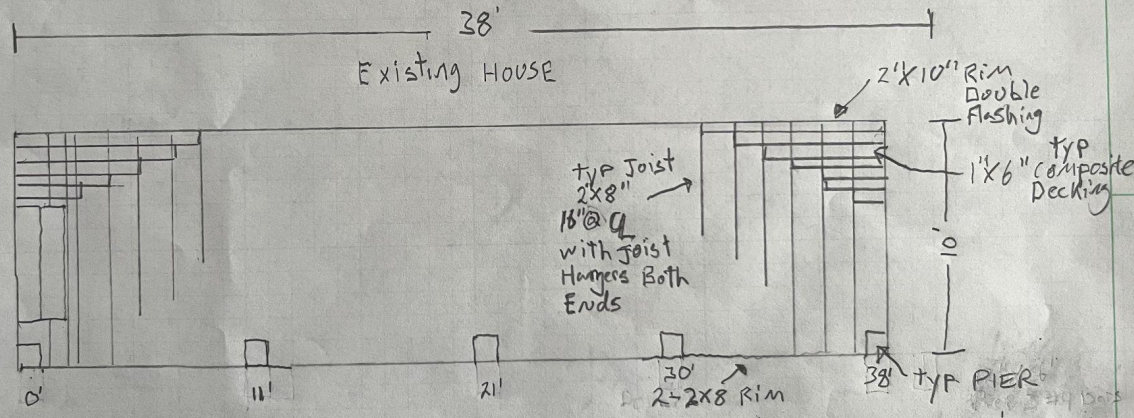 38'
Existing House
2"X10" Rim
Double
Flashing
typ
1"X6" Composite
Decking
typ Joist
2"X8"
16"@ ℄
with Joist
Hangers Both
Ends
10'
0'
11'
21'
30'
38'
typ PIER
2-2X8 Rim